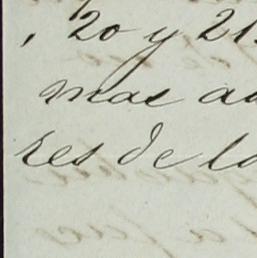 , 20 y 21
mas a
res de lo